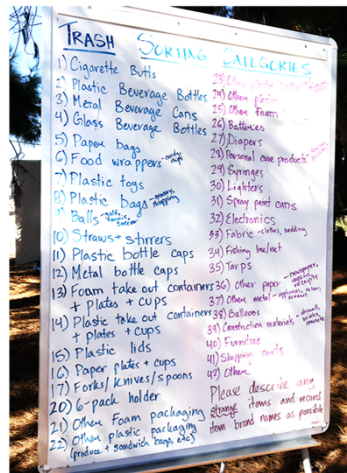 TRASH SORTING CATEGORIES
1) Cigarette Butts
2) Plastic Beverage Bottles
3) Metal Beverage Cans
4) Glass Beverage Bottles
5) Paper bags
6) Food wrappers
7) Plastic toys
8) Plastic bags - grocery, shopping
9) Balls - golf, tennis, soccer
10) Straws + stirrers
11) Plastic bottle caps
12) Metal bottle caps
13) Foam take out containers
+ plates + cups
14) Plastic take out containers
+ plates + cups
15) Plastic lids
16) Paper plates + cups
17) Forks/knives/spoons
20) 6-pack holder
21) Other Foam packaging
22) Other plastic packaging
(produce + sandwich bags, etc)
23) Other
24) Other plastic
25) Other foam
26) Batteries
27) Diapers
28) Personal care products
29) Syringes
30) Lighters
31) Spray paint cans
32) Electronics
33) Fabric - clothes, bedding
34) Fishing line/net
35) Tarps
36) Other paper - newspaper, receipts
37) Other metal
38) Balloons
39) Construction materials - drywall, bricks, concrete
40) Furniture
41) Shopping carts
42) Other
Please describe any
strange items and record
item brand names as possible